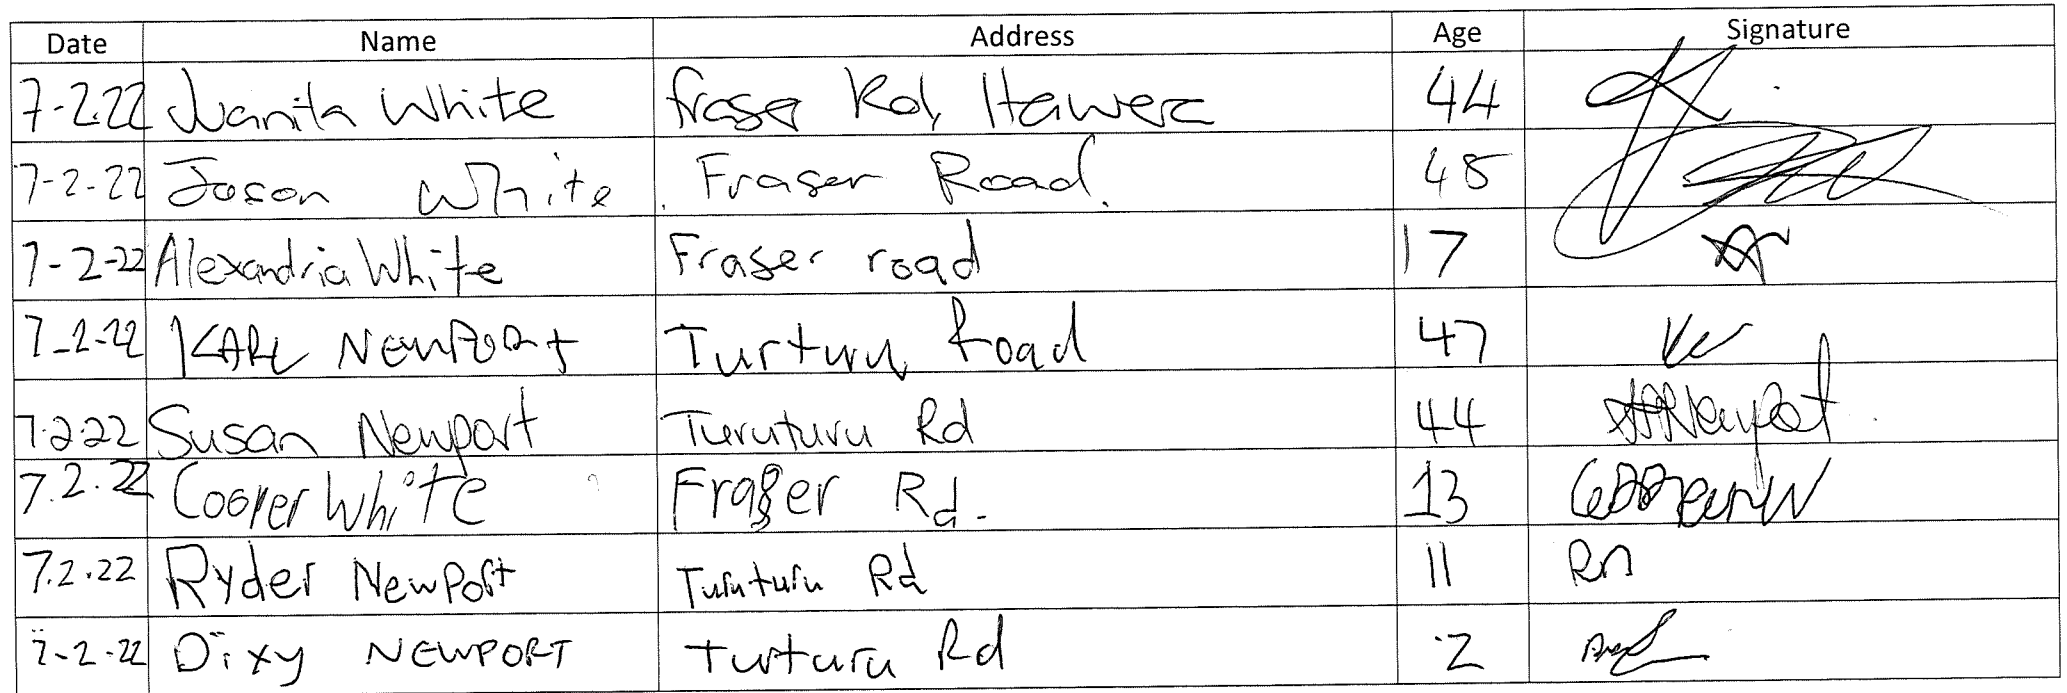 Date Name Address Age Signature
7-2.22 Juanita White Fraser Rd, Hawera 44
7-2-22 Jason White Fraser Road. 45
7-2-22 Alexandria White Fraser road 17
7-2-22 KARL NEWPORT Turturu Road 47
7.2.22 Susan Newport Turuturu Rd 44 Newport
7.2.22 Cooper White Fraser Rd. 13
7.2.22 Ryder Newport Turuturu Rd 11 Rn
7-2-22 Dixy NEWPORT Turturu Rd 2